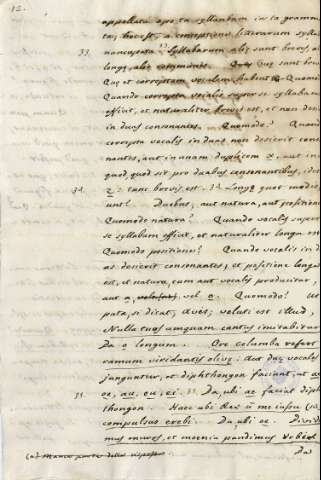 12.
appellata apo tu syllanbam in ta gramma-
ta, hoc est, a conceptione litterarum sylla
33. nuncupata. Syllabarum aliæ sunt breves, aliæ
longæ, aliæ communes. Quæ sunt breves
Quæ et correptam vocalem habent Quomodo
Quando correpta vocalis super se syllabam
efficit, et naturaliter brevis est, et non desinit
in duas consonantes. Quomodo? Quoniam
correpta vocalis in duas non desierit conso-
nantes, aut in unam duplicem x, aut in
quod, quod sit pro duabus consonantibus, idest
34. z: tunc brevis est. Longæ quot modis
sunt? Duobus, aut natura, aut positione
Quomodo natura? Quando vocalis super
se syllabam efficit, et naturaliter longa est
Quomodo positione? Quando vocalis in du-
as desierit consonantes, et positione longa
est, et natura, cum aut vocalis producitur,
aut a, vel o. Quomodo? Ut
puta, si dicat, aves; veluti est illud,
Nulla tuos umquam cantus imitabitur
Da o longum. Ore columba refert
ramum viridantis olivæ. Aut duæ vocales
junguntur, et diphthongon faciunt, ut ae
35. oe, au, eu, ei. Da, ubi ae faciat diph
thongon. Haec ubi
compulsus erebi. Da, ubi oe. Dividi-
mus muros, et moenia pandimus
(a) Manca
Da